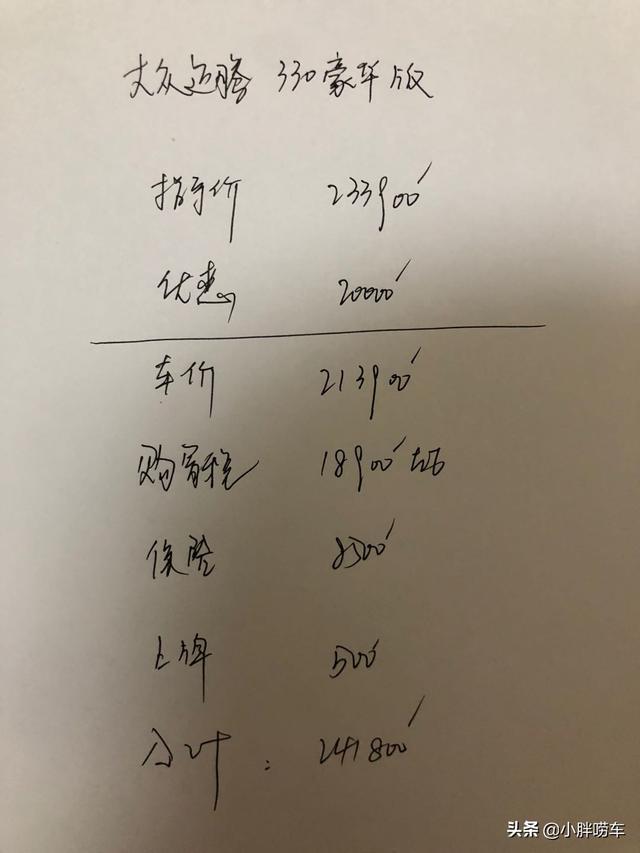 大众迈腾 330豪华版
指导价 233900
优惠 20000
车价 213900
购置税 18900左右
保险 8500
上牌 500
合计: 241800
头条 @小胖唠车